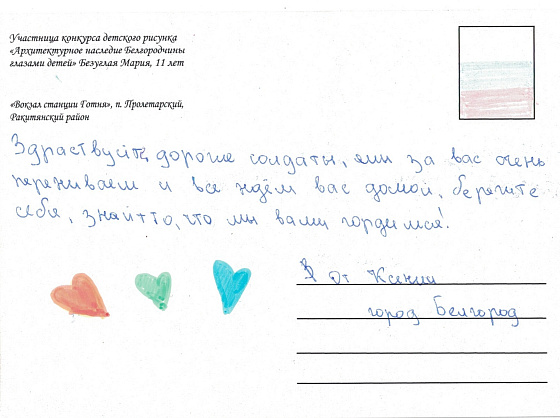 Участница конкурса детского рисунка
«Архитектурное наследие Белгородчины
глазами детей» Безуглая Мария, 11 лет
«Вокзал станции Готня», п. Пролетарский,
Ракитянский район
Здраствуйте, дорогие солдаты, мы за вас очень
переживаем и все ждём вас домой, берегите
себя, знайте, что мы вами гордимся!
От Ксении
город Белгород